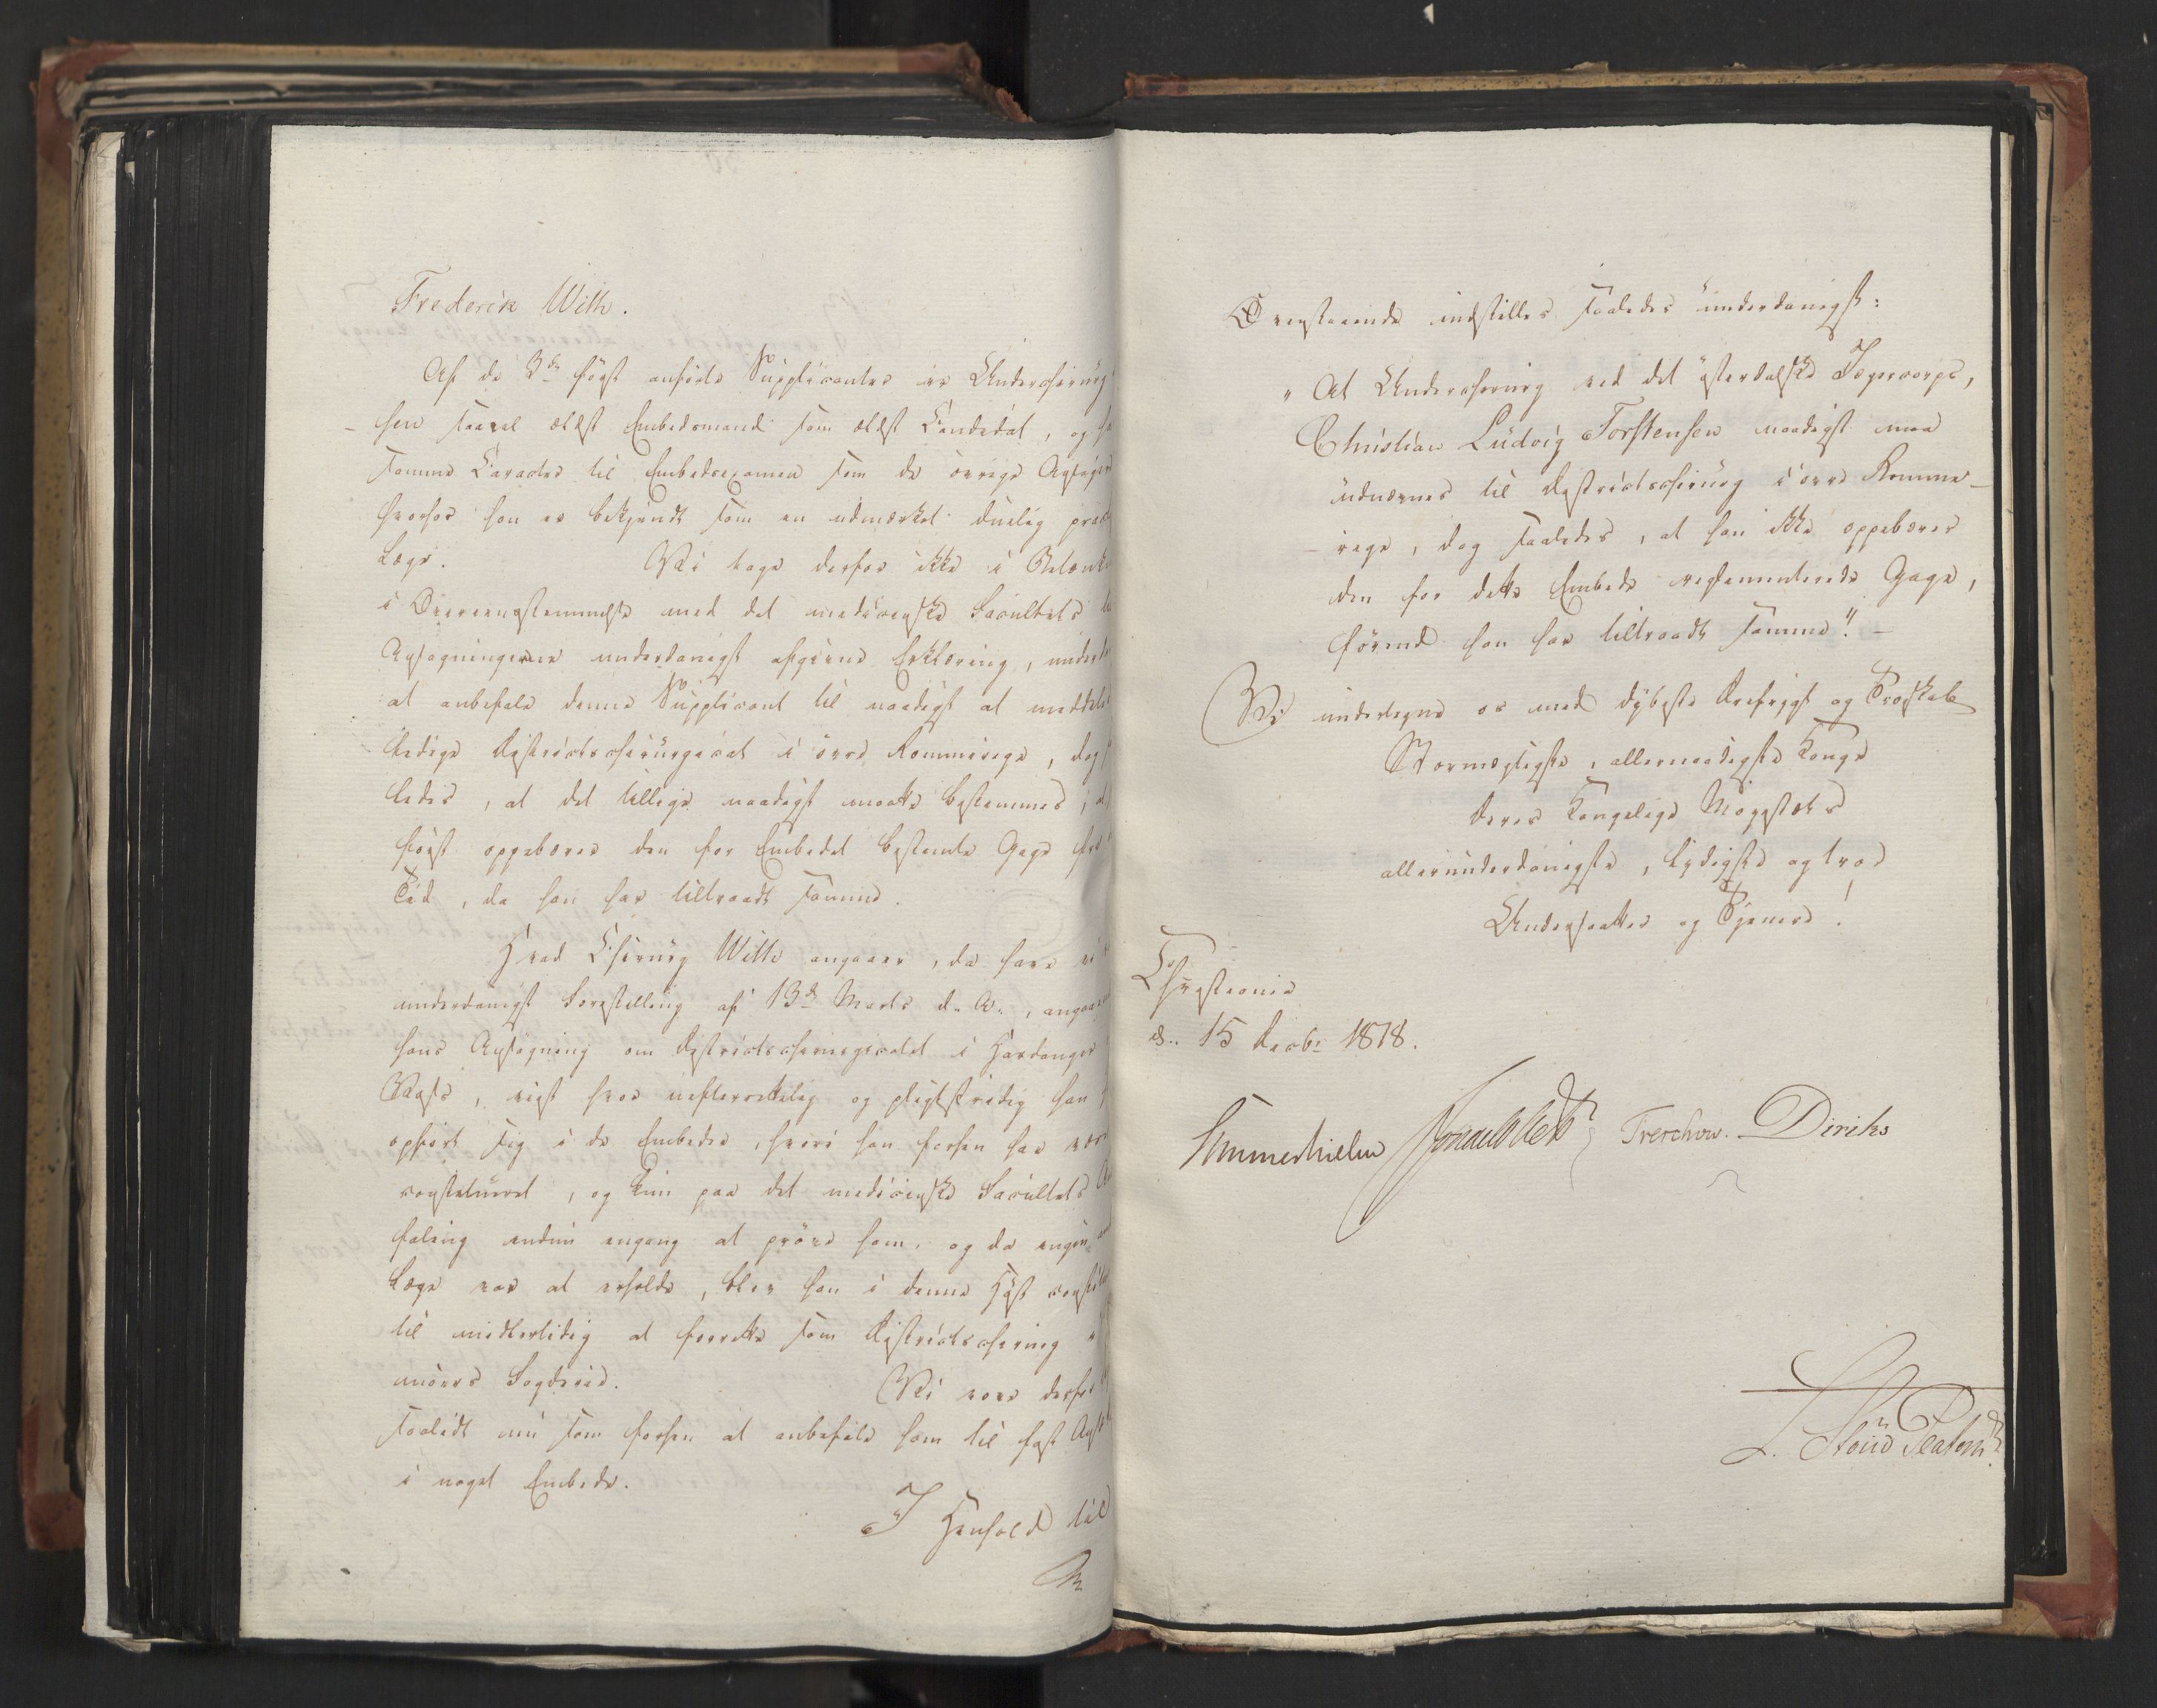 Frederik With.
Af de 3de først anførte Supplicanter er Underchirurg
sen saavel ældst Embedsmand som ældst Candidat, og
samme Caracter til Embedsexamen som de øvrige
hvorhos han er bekjendt som en udmærket duelig
Læge. Vi tage derfor ikke i
i Overeensstemmelse med det medicinske Facultets
Ansøgningerne underdanigst afgivne Erklæring,
at anbefale denne Supplicant til naadigst at meddeles
ledige Districtschirurgicat i øvre Rommerige, dog
ledes, at det tillige naadigst maatte bestemmes,
først oppebærer den for Embedet bestemte Gage fra
Tid, da han har tiltraadt samme.
Hvad Chirurg With angaaer, da have vi
underdanigst Forestilling af 13de Marts d. A.,
hans Ansøgning om Districtschirurgicatet i Hardanger
Voss, viist hvor uefterrettelig og pligtstridig han
opført sig i de Embeder, hvori han forhen har
constitueret, og kun paa det medicinske Facultets
faling endnu engang at prøve ham, og da ingen
Læge var at erholde, blev han i denne Høst
til midlertidig at forrette som Districtschirurg
møers Fogderie. Vi vove derfor
saalidt nu som forhen at anbefale ham til fast
i noget Embede.
I Henhold til
Ovenstaaende indstilles saaledes underdanigst:
"At Underchirurg ved det østerdalske Jegercorps,
Christian Ludvig Torstensen naadigst maa
udnævnes til Districtschirurg i øvre Romme-
rige, dog saaledes, at han ikke oppebærer
den for dette Embede reglementerede Gage,
førend han har tiltraadt samme." -
Vi undertegne os med dybeste Ærefrygt og Troskab
Stormægtigste, allernaadigste Konge
Deres Kongelige Majestæts
allerunderdanigste, lydigste og troe
Undersaatter og Tjenere!
Christiania
d. 15 Decbr 1818.
Sommerhielm Jonas Collett Treschow. Diriks
L. Stoud Platou